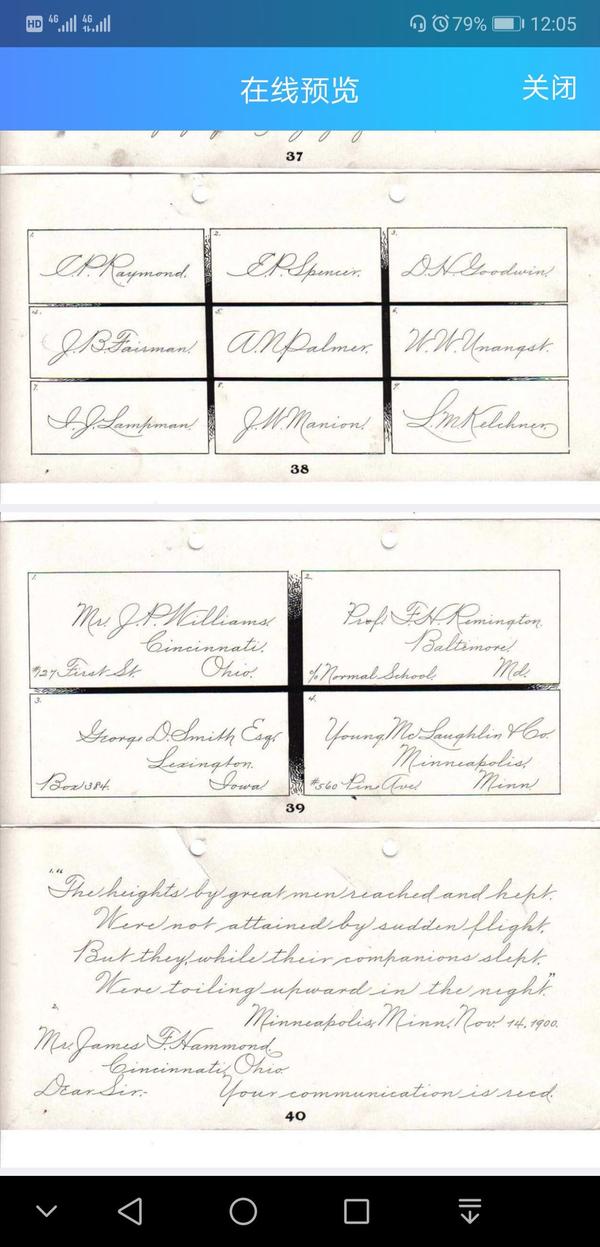 HD 4G 4G 79% 12:05
在线预览 关闭
37
1. C.P. Raymond.
2. E.P. Spencer.
3. D.H. Goodwin.
4. J.B. Fairman.
5. A.N. Palmer.
6. W.W. Unangst.
7. I.J. Lampman.
8. J.W. Manion.
9. L.M. Kelchner.
38
1.
Mr. J.P. Williams,
Cincinnati,
#127 First St. Ohio.
2.
Prof. F.H. Remington.
Baltimore,
% Normal School. Md.
3.
George D. Smith Esq.,
Lexington.
Box 384. Iowa.
4.
Young, McLaughlin & Co.
Minneapolis,
#560 Pine Ave. Minn.
39
1. "The heights by great men reached and kept,
Were not attained by sudden flight,
But they, while their companions slept,
Were toiling upward in the night."
2.
Minneapolis, Minn., Nov. 14, 1900.
Mr. James F. Hammond,
Cincinnati, Ohio.
Dear Sir:- Your communication is recd.
40